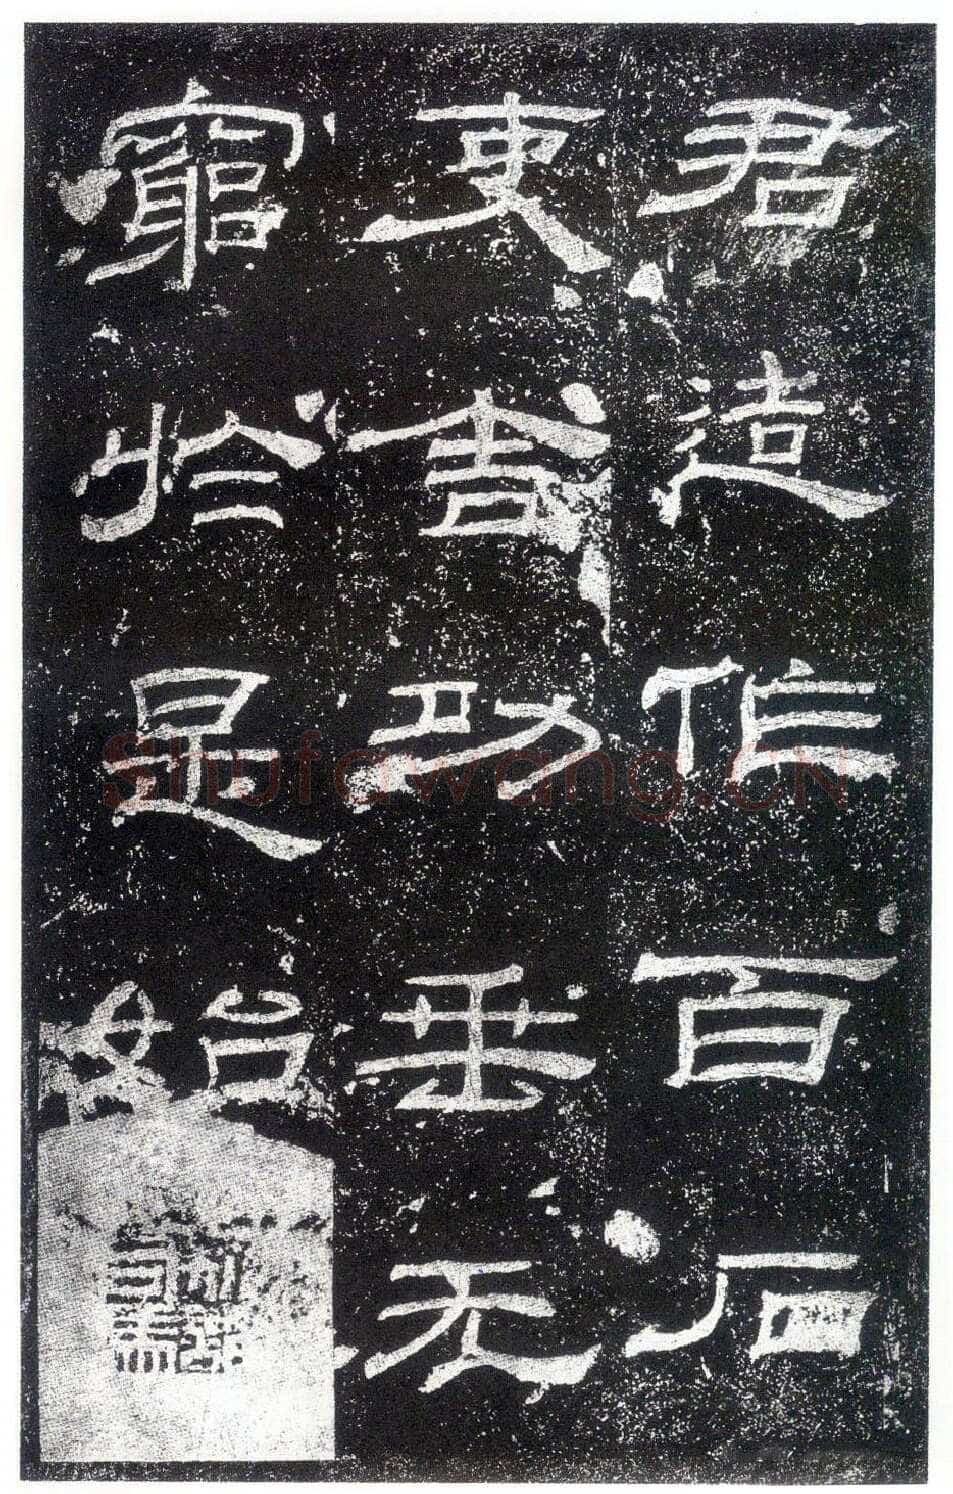 君造作百石
吏舍功垂无
窮於是始
Shufawang.CN